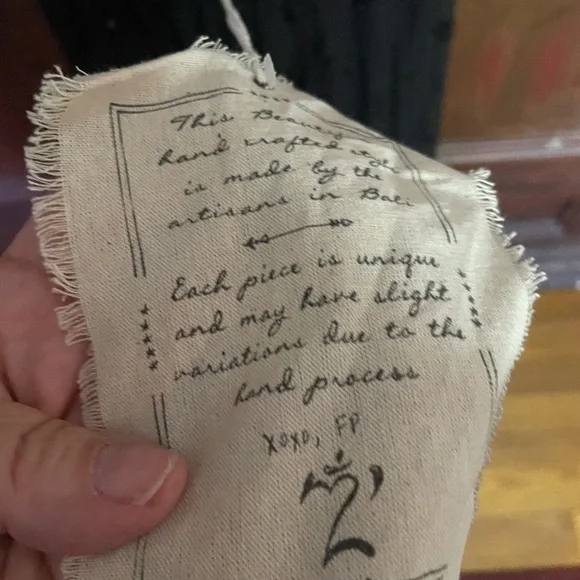 This Beauty
hand crafted style
is made by the
artisans in Bali
Each piece is unique
and may have slight
variations due to the
hand process
XOXO, FP